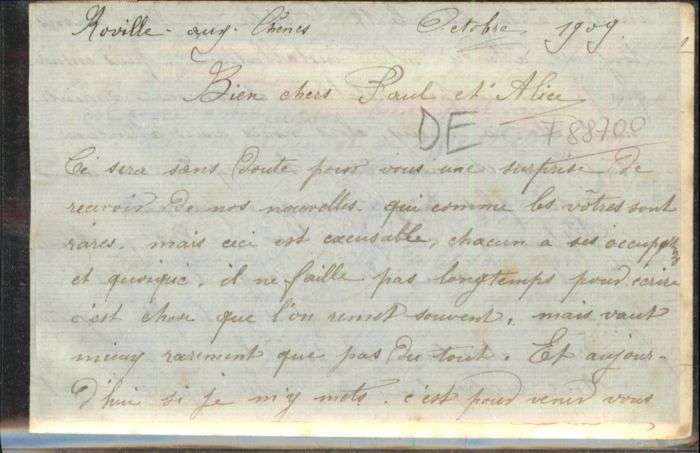 Roville-aux-Chênes Octobre 1909.
Bien chers Paul et Alice
DE F88700
Ce sera sans doute pour vous une surprise de
recevoir de nos nouvelles. qui comme les vôtres sont
rares. mais ceci est excusable, chacun a ses occupations
et quoique, il ne faille pas longtemps pour écrire
c'est chose que l'on remet souvent. mais vaut
mieux rarement que pas du tout. Et aujour-
d'hui si je m'y mets. c'est pour venir vous